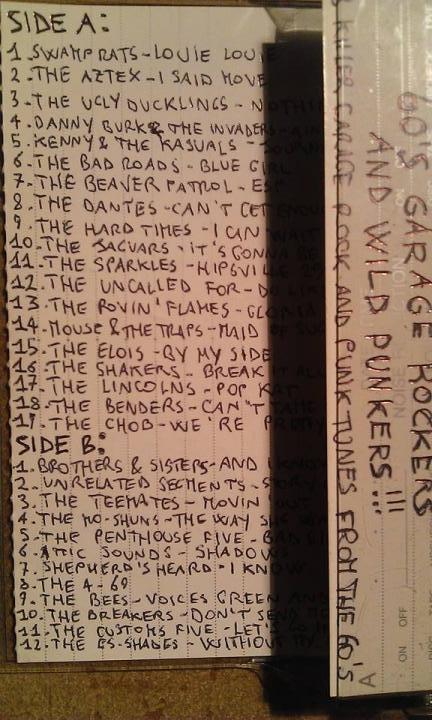 SIDE A:
1. SWAMP RATS - LOUIE LOUIE
2. THE AZTEX - I SAID MOVE
3. THE UGLY DUCKLINGS - NOTHIN
4. DANNY BURK & THE INVADERS - AIN
5. KENNY & THE KASUALS - JOURN
6. THE BAD ROADS - BLUE GIRL
7. THE BEAVER PATROL - ESP
8. THE DANTES - CAN'T GET ENOUG
9. THE HARD TIMES - I CAN WAIT
10. THE JAGUARS - IT'S GONNA BE
11. THE SPARKLES - HIPSVILLE 29
12. THE UNCALLED FOR - DO LIK
13. THE ROVIN' FLAMES - GLORIA
14. MOUSE & THE TRAPS - MAID OF SU
15. THE ELOIS - BY MY SIDE
16. THE SHAKERS - BREAK IT ALL
17. THE LINCOLNS - POP KAT
18. THE BENDERS - CAN'T TAME
19. THE CHOB - WE'RE PRETTY
SIDE B:
1. BROTHERS & SISTERS - AND I KNOW
2. UNRELATED SEGMENTS - STORY
3. THE TEEMATES - MOVIN' OUT
4. THE MO-SHUNS - THE WAY SHE
5. THE PENTHOUSE FIVE - BAD
6. ATTIC SOUNDS - SHADOWS
7. SHEPHERD'S HEARD - I KNOW
8. THE 4 - 69
9. THE BEES - VOICES GREEN AND
10. THE BREAKERS - DON'T SEND ME
11. THE CUSTOMS FIVE - LET'S GO
12. THE ES-SHADES - WITHOUT MY
60'S GARAGE ROCKERS
AND WILD PUNKERS!!!
KILLER GARAGE ROCK AND PUNK TUNES FROM THE 60'S
A
ON OFF